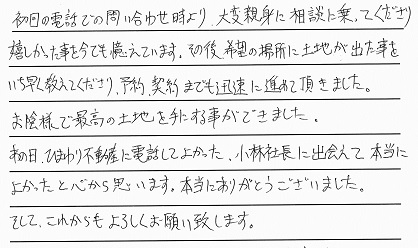 初日の電話での問い合わせ時より、大変親身に相談に乗ってくださり
嬉しかった事を今でも憶えています。その後、希望の場所に土地が出た事を
いち早く教えてくださり、予約、契約までも迅速に進めて頂きました。
お陰様で最高の土地を手にする事ができました。
初日、ひまわり不動産に電話してよかった、小林社長に出会えて本当に
よかったと心から思います。本当にありがとうございました。
そして、これからもよろしくお願い致します。